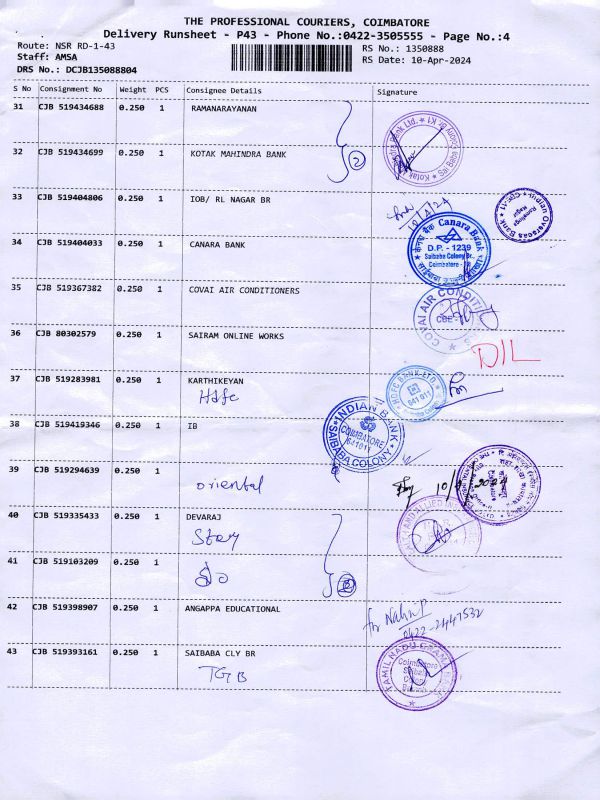 THE PROFESSIONAL COURIERS, COIMBATORE
Delivery Runsheet - P43 - Phone No.:0422-3505555 - Page No.:4
Route: NSR RD-1-43
RS No.: 1350888
Staff: AMSA
RS Date: 10-Apr-2024
DRS No.: DCJB135088804
S No Consignment No Weight PCS Consignee Details Signature
31 CJB 519434688 0.250 1 RAMANARAYANAN
32 CJB 519434699 0.250 1 KOTAK MAHINDRA BANK
2
33 CJB 519404806 0.250 1 IOB/ RL NAGAR BR
Indian Overseas Bank
34 CJB 519404033 0.250 1 CANARA BANK
Canara Bank
D.P. - 1239
Saibaba Colony Br.,
Coimbatore
35 CJB 519367382 0.250 1 COVAI AIR CONDITIONERS
COVAI AIR CONDITI
36 CJB 80302579 0.250 1 SAIRAM ONLINE WORKS
D/L
37 CJB 519283981 0.250 1 KARTHIKEYAN
Hdfc
HDFC BANK LTD
641 011
38 CJB 519419346 0.250 1 IB
INDIAN BANK
COIMBATORE
641011
SAIBABA COLONY
39 CJB 519294639 0.250 1
oriental
40 CJB 519335433 0.250 1 DEVARAJ
41 CJB 519103209 0.250 1
42 CJB 519398907 0.250 1 ANGAPPA EDUCATIONAL
0422-2447532
43 CJB 519393161 0.250 1 SAIBABA CLY BR
TGB
TAMIL NADU GRAMA
Coimbatore